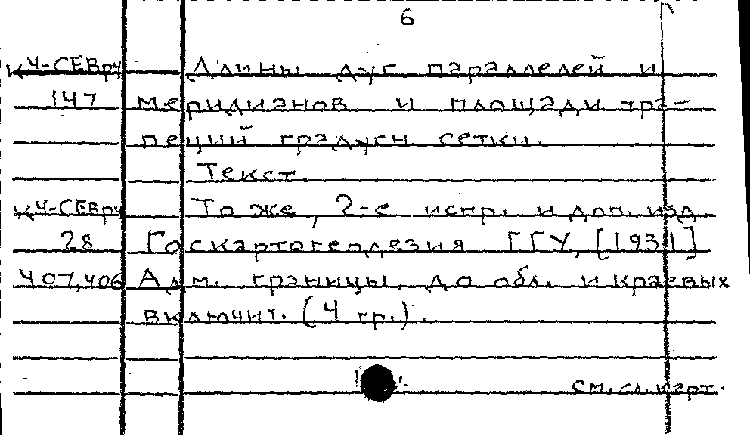 6
Ч-СЕВРу Длины дуг параллелей и
147 меридианов и площади тра-
пеций градусн. сетки.
Текст.
Ч-СЕВРу То же, 2-е испр. и доп. изд.
28 Госкартогеодезия ГГУ, [1931]
407,406 Адм. границы до обл. и краевых
включит. (4 гр.).
см. сл. карт.